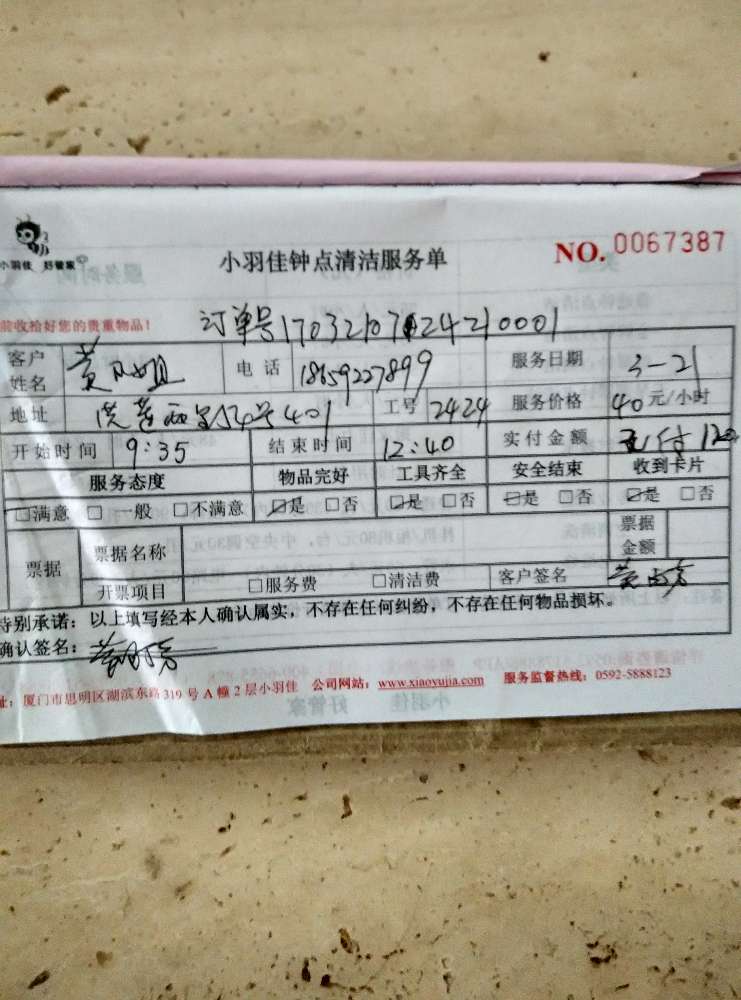 小羽佳 好管家
小羽佳钟点清洁服务单
NO. 0067387
前收拾好您的贵重物品！
订单号
客户姓名 黄 姐 电话 18659227899 服务日期 3-21
地址 54号401 工号 2424 服务价格 40元/小时
开始时间 9:35 结束时间 12:40 实付金额 付120
服务态度 物品完好 工具齐全 安全结束 收到卡片
□满意 □一般 □不满意 □是 □否 □是 □否 □是 □否 □是 □否
票据 票据名称 票据金额
开票项目 □服务费 □清洁费 客户签名
特别承诺：以上填写经本人确认属实，不存在任何纠纷，不存在任何物品损坏。
确认签名：
址：厦门市思明区湖滨东路319号A幢2层小羽佳 公司网站：www.xiaoyujia.com 服务监督热线：0592-5888123